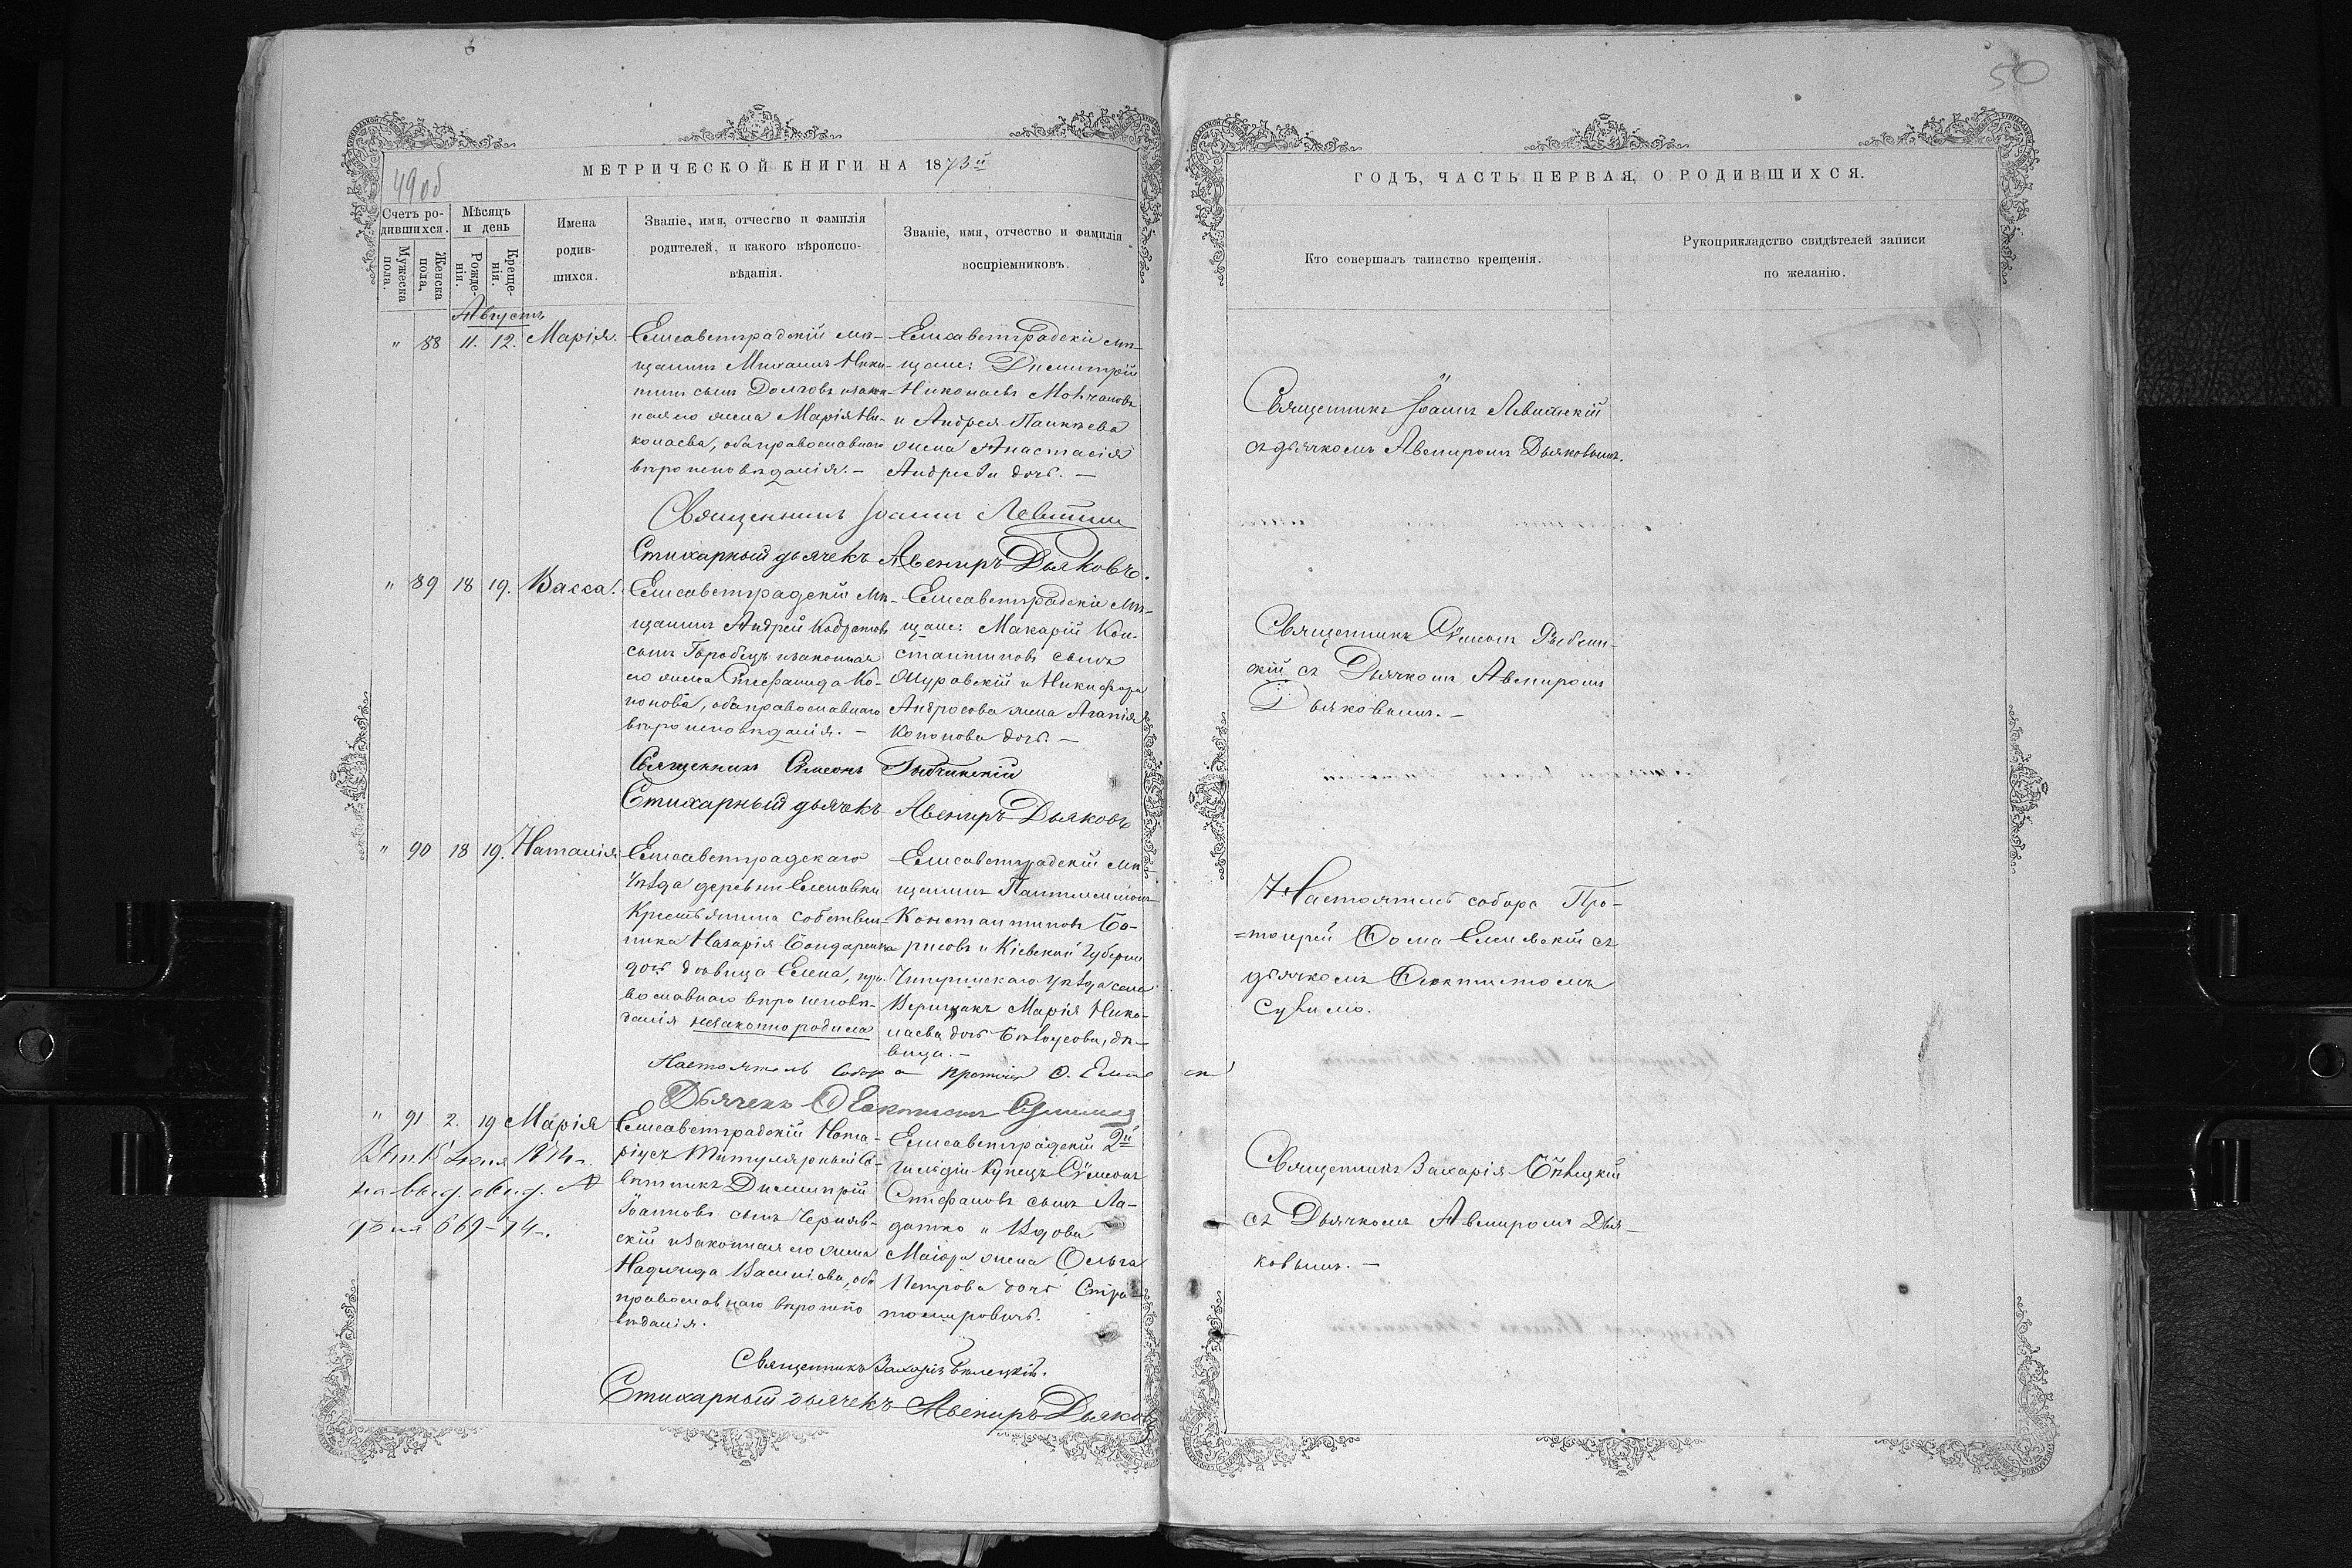 50
49 об
МЕТРИЧЕСКОЙ КНИГИ НА 1873й
Счетъ ро-
дившихся.
Мужеска пола.
Женска пола.
Мѣсяцъ
и день
Рожде-
нія.
Креще-
нія.
Имена
родив-
шихся.
Званіе, имя, отчество и фамилія
родителей, и какого вѣроиспо-
вѣданія.
Званіе, имя, отчество и фамилія
воспріемниковъ.
Августъ
" 88 11. 12. Марія.
Елисаветградскій мѣ-
щанинъ Михаилъ Ники-
тинъ сынъ Долговъ и закон-
ная его жена Марія Ни-
колаева, оба православнаго
вѣроисповѣданія. –
Елисаветградскіе мѣ-
щане: Димитрій
Николаевъ Молчановъ
и Андрея
жена Анастасія
Андреева дочь. –
Священникъ Іоаннъ Левитскій
Стихарный дьячекъ Авениръ Дьяковъ.
" 89 18 19. Васса.
Елисаветградскій мѣ-
щанинъ Андрей Кодратовъ
сынъ Горобецъ и законная
его жена Стефанида Ко-
нонова, оба православнаго
вѣроисповѣданія. –
Елисаветградскіе мѣ-
щане: Макарій Кон-
стантиновъ сынъ
и Никифора
Андросова жена Агапія
Кононова дочь. –
Священникъ Симеонъ Рыбчинскій
Стихарный дьячекъ Авениръ Дьяковъ
" 90 18 19. Наталія
Елисаветградскаго
уѣзда деревни Еленовки
Крестьянина собствен-
ника Назарія Бондаренка
дочь дѣвица Елена, пра-
вославнаго вѣроисповѣ-
данія незаконно родила
Елисаветградскій мѣ-
щанинъ Пантелеймонъ
Константиновъ Бо-
рисовъ и Кіевской губерніи
Чигиринскаго уѣзда села
Вершакъ Марія Нико-
лаева дочь Бѣлоусова, дѣ-
вица. –
Настоятель Собора протоіер Ѳ.
Дьячекъ Ѳеоктистъ
" 91 2. 19 Марія
1874 г.
на выд. свид.
669-74.
Елисаветградскій Нота-
ріусъ Титулярный Со-
вѣтникъ Димитрій
Іоанновъ сынъ Черняв-
скій и законная его жена
Надежда Васильева, оба
православнаго вѣроиспо
вѣданія.
Елисаветградскій 2й
Гильдіи Купецъ Симеонъ
Стефановъ сынъ Ла-
датко " Вдова
Маіора жена Ольга
Петрова дочь Стра-
томировичъ.
Священникъ Захарія Бѣлецкій.
Стихарный дьячекъ Авениръ Дьяковъ
ГОДЪ, ЧАСТЬ ПЕРВАЯ, О РОДИВШИХСЯ.
Кто совершалъ таинство крещенія.
Рукоприкладство свидѣтелей записи
по желанію.
Священникъ Іоаннъ Левитскій
съ дьячкомъ Авениромъ Дьяковымъ.
Священникъ Симеонъ Рыбчин-
скій съ Дьячкомъ Авениромъ
Дьяковымъ. –
Настоятель собора Про-
=тоіерей Ѳома съ
дьячкомъ Ѳеоктистомъ
Священникъ Захарія Бѣлецкій
съ Дьячкомъ Авениромъ Дья-
ковымъ. –